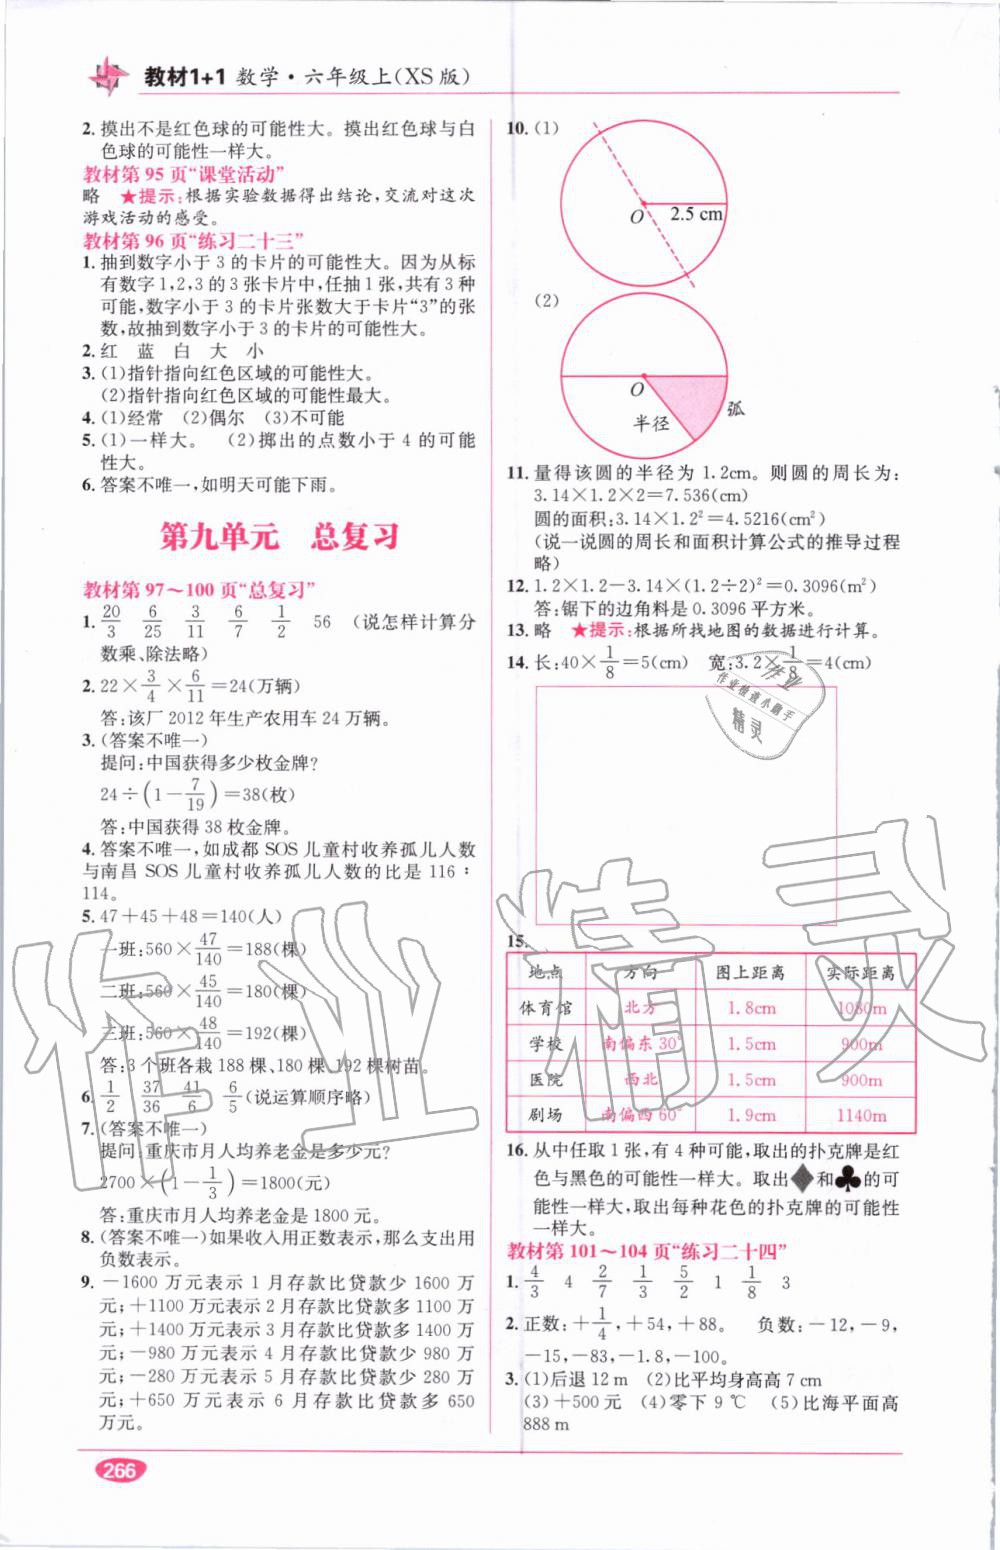 教材1+1 数学·六年级上(XS版)
2. 摸出不是红色球的可能性大。摸出红色球与白
色球的可能性一样大。
教材第 95 页“课堂活动”
略 ★提示:根据实验数据得出结论,交流对这次
游戏活动的感受。
教材第 96 页“练习二十三”
1. 抽到数字小于 3 的卡片的可能性大。因为从标
有数字 1,2,3 的 3 张卡片中,任抽 1 张,共有 3 种
可能,数字小于 3 的卡片张数大于卡片“3”的张
数,故抽到数字小于 3 的卡片的可能性大。
2. 红 蓝 白 大 小
3. (1)指针指向红色区域的可能性大。
(2)指针指向红色区域的可能性最大。
4. (1)经常 (2)偶尔 (3)不可能
5. (1)一样大。 (2)掷出的点数小于 4 的可能
性大。
6. 答案不唯一,如明天可能下雨。
第九单元 总复习
教材第 97～100 页“总复习”
1. 20/3 6/25 3/11 6/7 1/2 56 (说怎样计算分
数乘、除法略)
2. 22×3/4×6/11=24(万辆)
答:该厂 2012 年生产农用车 24 万辆。
3. (答案不唯一)
提问:中国获得多少枚金牌?
24÷(1-7/19)=38(枚)
答:中国获得 38 枚金牌。
4. 答案不唯一,如成都 SOS 儿童村收养孤儿人数
与南昌 SOS 儿童村收养孤儿人数的比是 116∶
114。
5. 47+45+48=140(人)
一班:560×47/140=188(棵)
二班:560×45/140=180(棵)
三班:560×48/140=192(棵)
答:3 个班各栽 188 棵、180 棵、192 棵树苗。
6. 1/2 37/36 41/6 6/5 (说运算顺序略)
7. (答案不唯一)
提问:重庆市月人均养老金是多少元?
2700×(1-1/3)=1800(元)
答:重庆市月人均养老金是 1800 元。
8. (答案不唯一)如果收入用正数表示,那么支出用
负数表示。
9. -1600 万元表示 1 月存款比贷款少 1600 万
元;+1100 万元表示 2 月存款比贷款多 1100 万
元;+1400 万元表示 3 月存款比贷款多 1400 万
元;-980 万元表示 4 月存款比贷款少 980 万
元;-280 万元表示 5 月存款比贷款少 280 万
元;+650 万元表示 6 月存款比贷款多 650
万元。
266
10. (1)
O 2.5 cm
(2)
O
半径
弧
11. 量得该圆的半径为 1.2cm。则圆的周长为:
3.14×1.2×2=7.536(cm)
圆的面积:3.14×1.2²=4.5216(cm²)
(说一说圆的周长和面积计算公式的推导过程
略)
12. 1.2×1.2-3.14×(1.2÷2)²=0.3096(m²)
答:锯下的边角料是 0.3096 平方米。
13. 略 ★提示:根据所找地图的数据进行计算。
14. 长:40×1/8=5(cm) 宽:3.2×1/8=4(cm)
作业
作业检查小助手
精灵
15.
地点 方向 图上距离 实际距离
体育馆 北方 1.8cm 1080m
学校 南偏东 30° 1.5cm 900m
医院 西北 1.5cm 900m
剧场 南偏西 60° 1.9cm 1140m
16. 从中任取 1 张,有 4 种可能,取出的扑克牌是红
色与黑色的可能性一样大。取出♦和♣的可
能性一样大,取出每种花色的扑克牌的可能性
一样大。
教材第 101～104 页“练习二十四”
1. 4/3 4 2/7 1/3 5/2 1 1/8 3
2. 正数:+1/4,+54,+88。 负数:-12,-9,
-15,-83,-1.8,-100。
3. (1)后退 12 m (2)比平均身高高 7 cm
(3)+500 元 (4)零下 9 ℃ (5)比海平面高
888 m
作业精灵